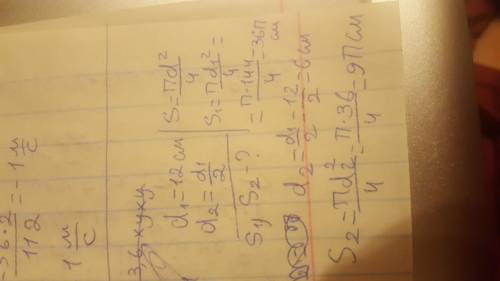 -36·2 / 112 = -1 м/с
1 м/с
d₁=12 см
d₂=d₁/2
S₁, S₂-?
S=πd²/4
S₁=πd₁²/4=
=π·144/4=36π см
d₂=d₁/2=12/2=6 см
S₂=πd₂²/4=π·36/4=9π см